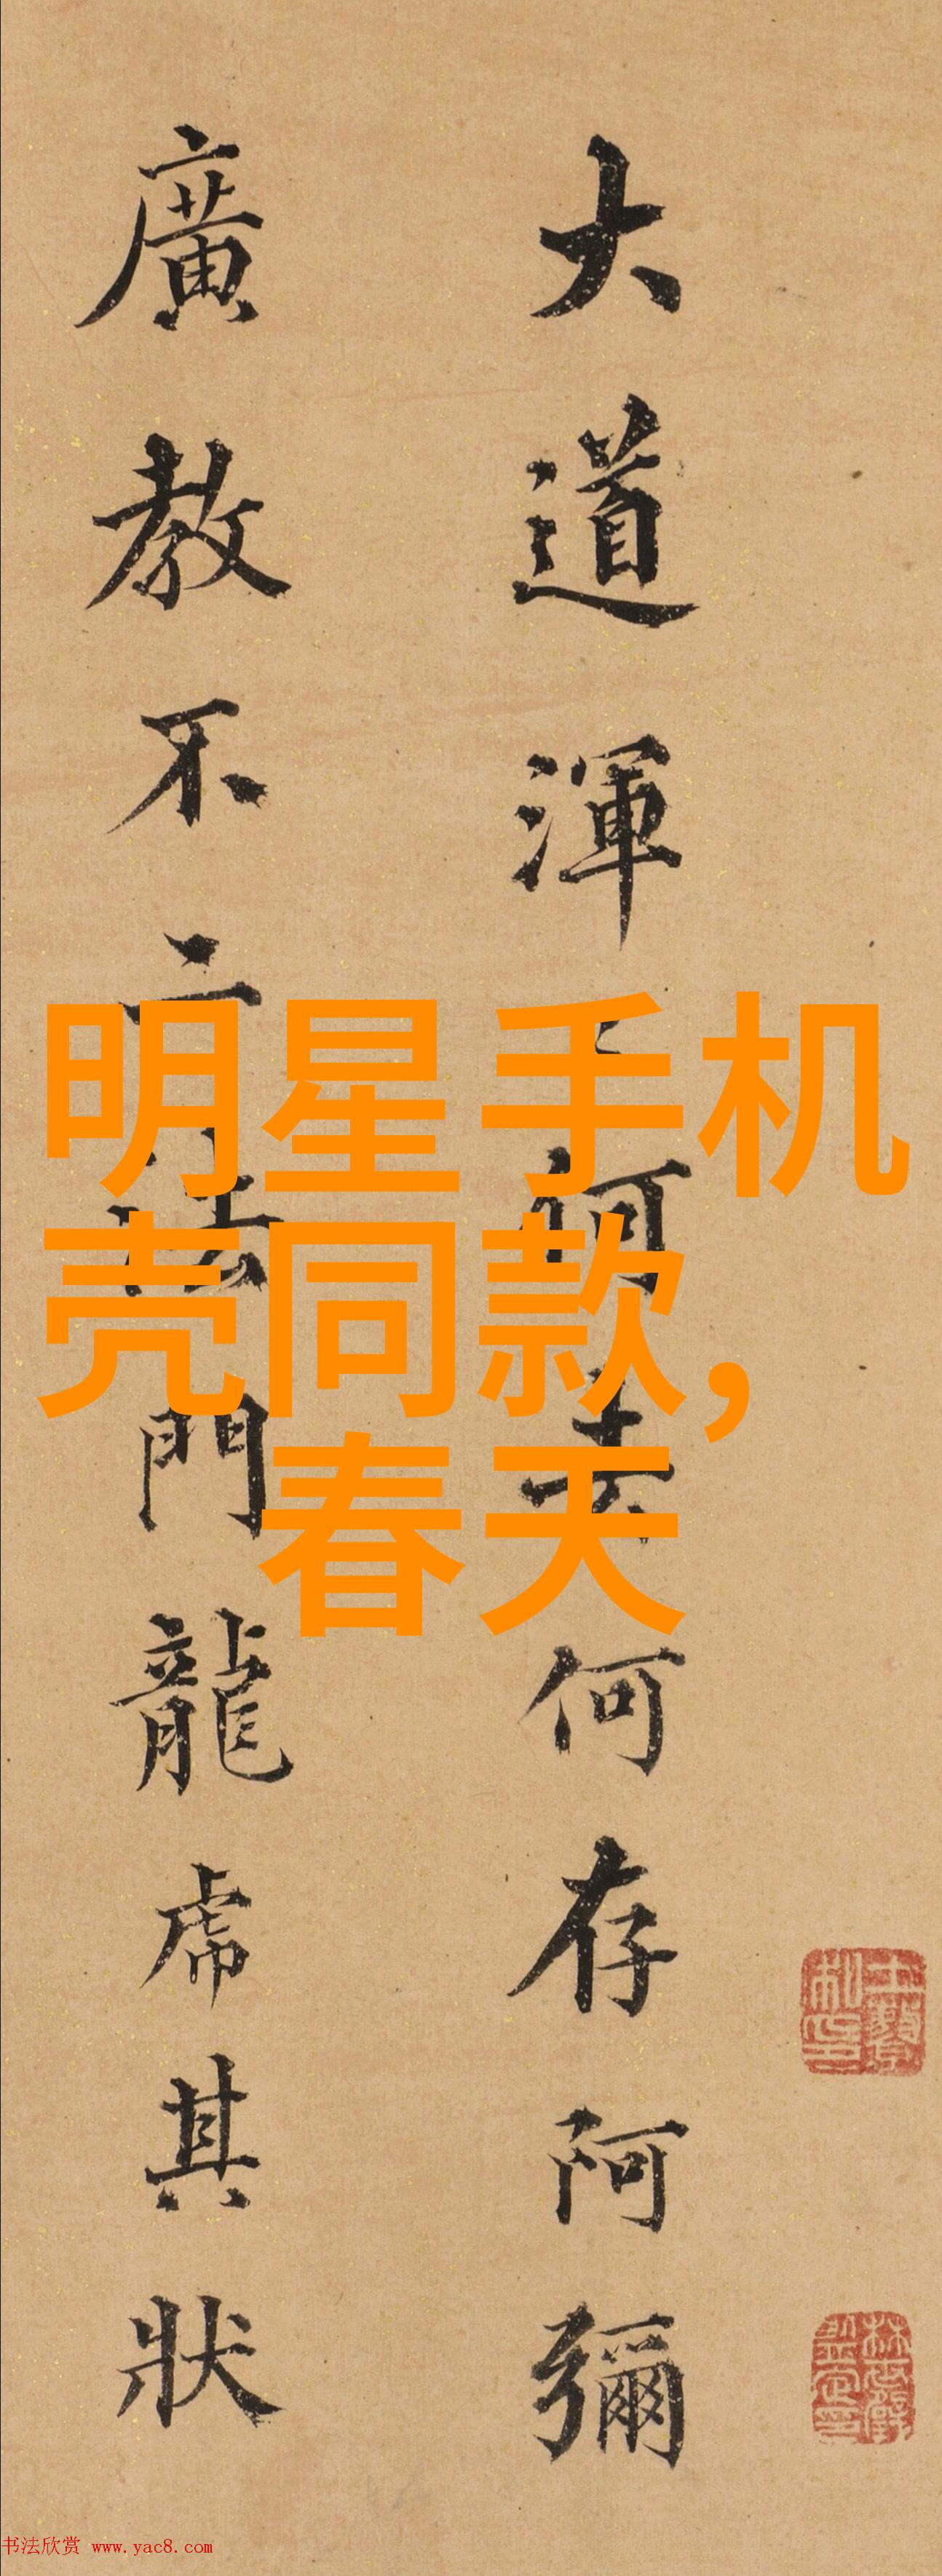 大道渾 何 何存阿彌
廣教不二法門龍虎其狀
明星手机
壳同款，
春天
书法欣赏 www.yac8.com